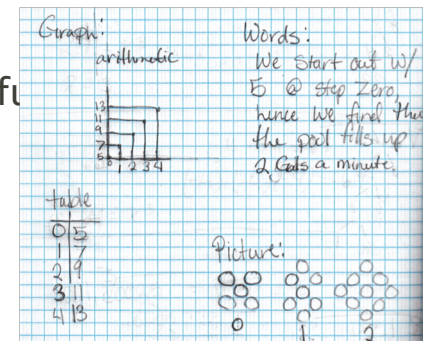 fu
Graph:
arithmetic
13
11
9
7
5
0 1 2 3 4
Words:
We start out w/
5 @ step zero,
hence we find the
the pool fills up
2 Gals a minute.
table
0 5
1 7
2 9
3 11
4 13
Picture:
0 1 2